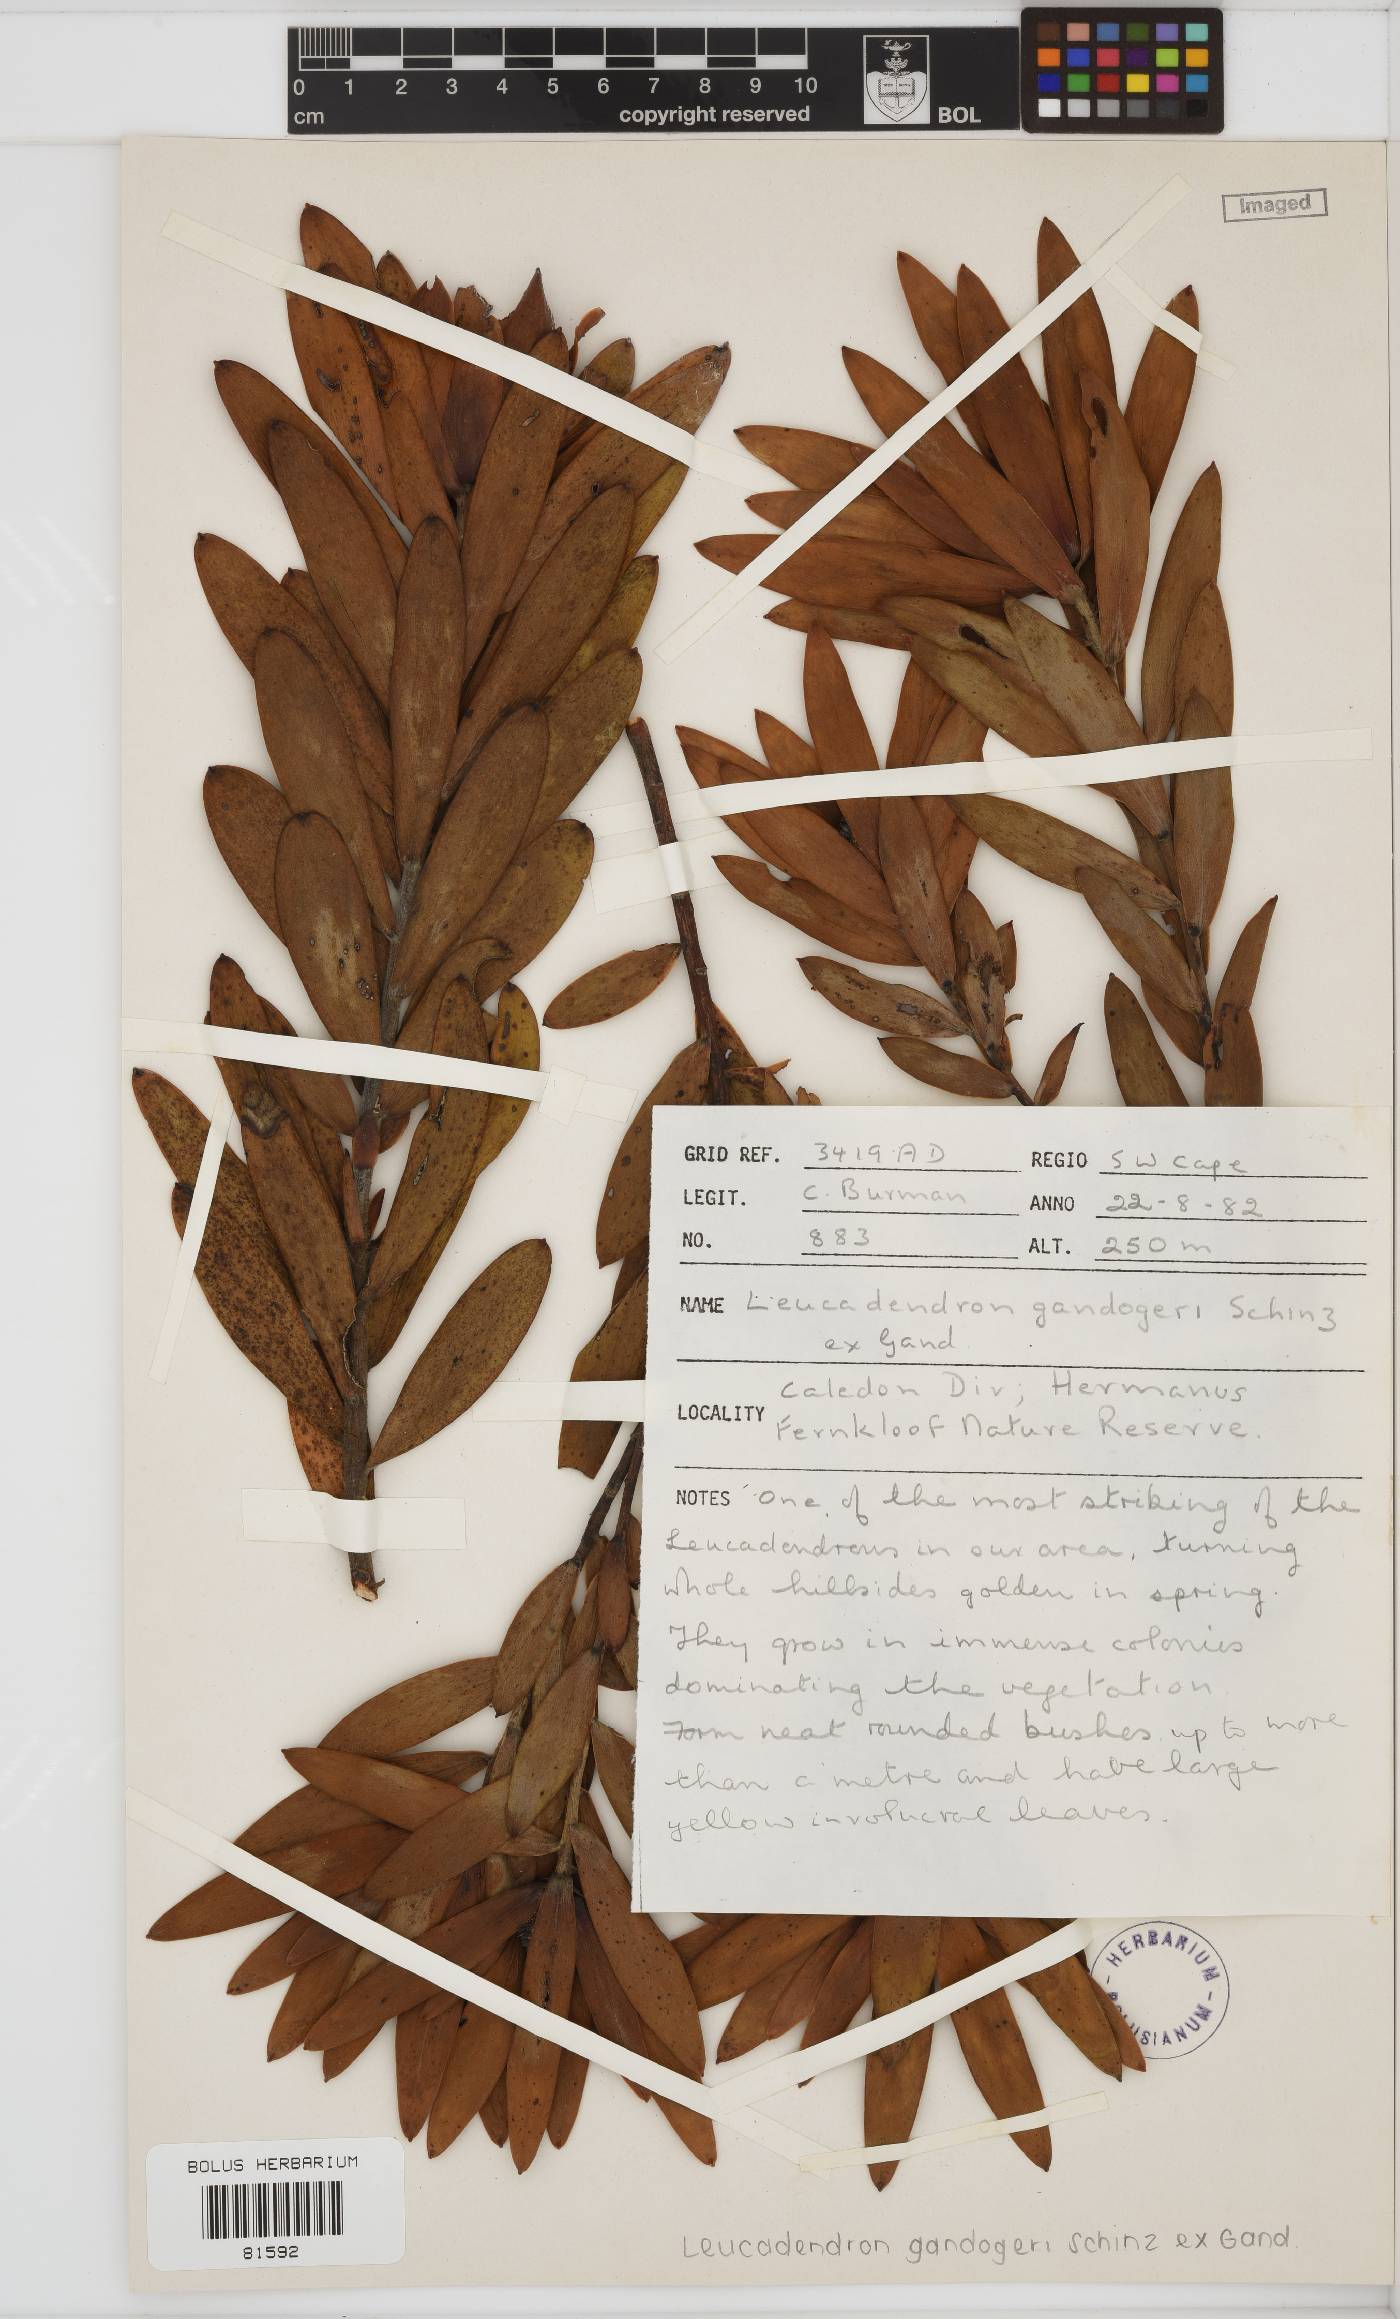 0 1 2 3 4 5 6 7 8 9 10
cm copyright reserved BOL
Imaged
GRID REF. 3419 AD REGIO S W Cape
LEGIT. C. Burman ANNO 22-8-82
NO. 883 ALT. 250 m
NAME Leucadendron gandogeri Schinz
ex Gand.
LOCALITY Caledon Div; Hermanus
Fernkloof Nature Reserve.
NOTES One of the most striking of the
Leucadendrons in our area, turning
whole hillsides golden in spring.
They grow in immense colonies
dominating the vegetation.
Form neat rounded bushes up to more
than a metre and have large
yellow involucral leaves.
HERBARIUM
BOLUSIANUM
BOLUS HERBARIUM
81592
Leucadendron gandogeri Schinz ex Gand.